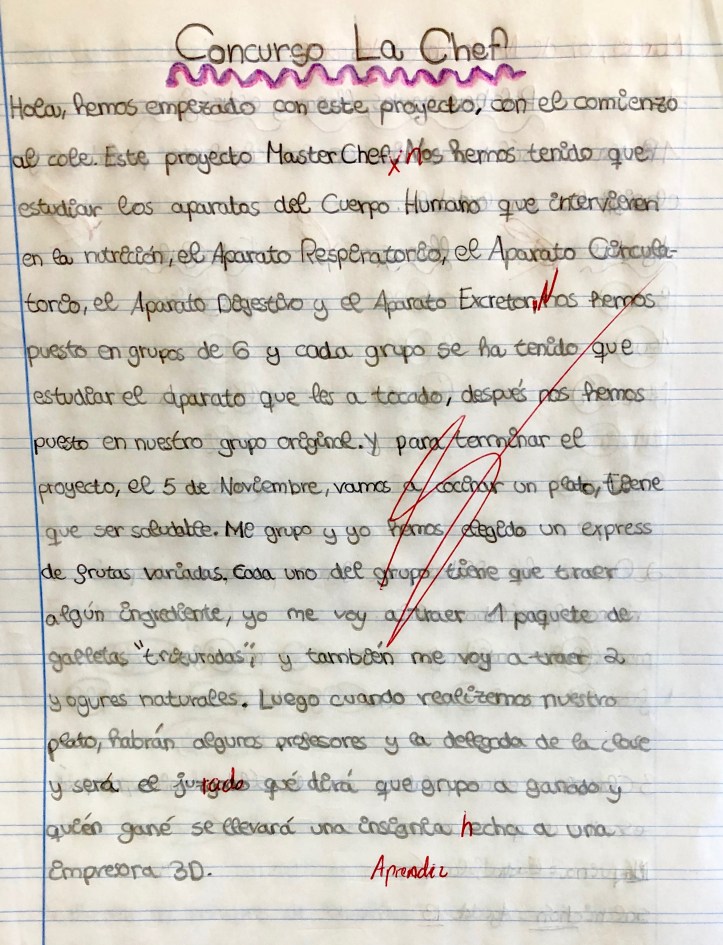 Concurso La Chef
Hola, hemos empezado con este proyecto, con el comienzo
al cole. Este proyecto Master Chef, Nos hemos tenido que
estudiar los aparatos del Cuerpo Humano que intervienen
en la nutrición, el Aparato Respiratorio, el Aparato Circula-
torio, el Aparato Digestivo y el Aparato Excretor, Nos hemos
puesto en grupos de 6 y cada grupo se ha tenido que
estudiar el aparato que les a tocado, después nos hemos
puesto en nuestro grupo original. Y para terminar el
proyecto, el 5 de Noviembre, vamos a cocinar un plato, tiene
que ser saludable. Mi grupo y yo hemos elegido un express
de frutas variadas. Cada uno del grupo tiene que traer
algún ingrediente, yo me voy a traer 1 paquete de
galletas "trituradas"; y también me voy a traer 2
yogures naturales. Luego cuando realizemos nuestro
plato, habrán algunos profesores y la delegada de la clase
y será el jurado qué dirá que grupo a ganado y
quién gané se llevará una insignia hecha a una
Empresora 3D. Aprendiz